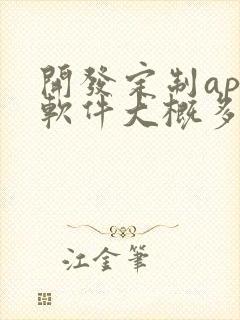 開發定制ap
軟件大概多
江金筆